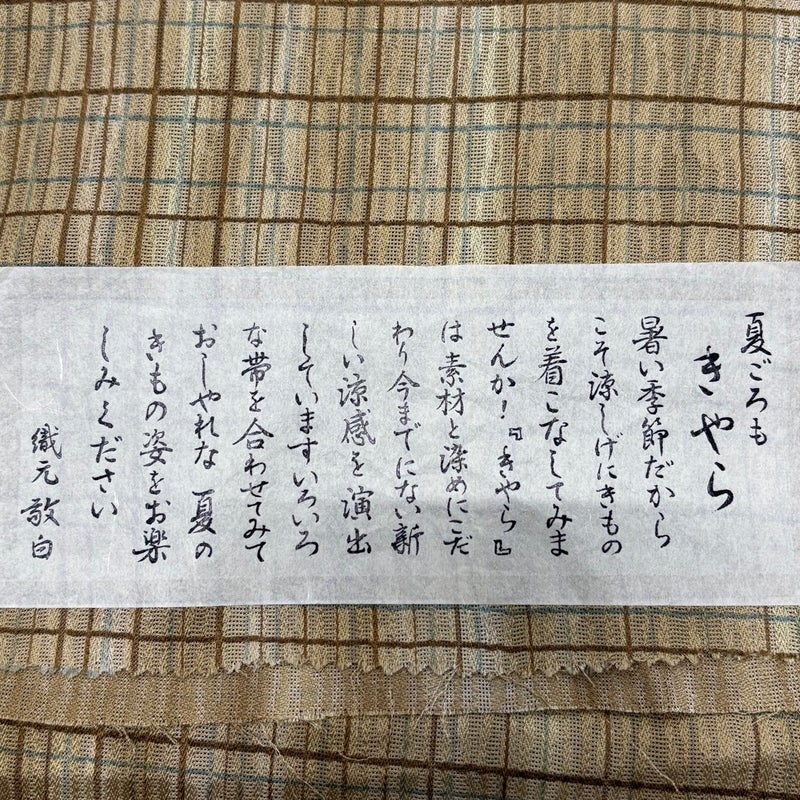 夏ごろも
きやら
暑い季節だから
こそ涼しげにきもの
を着こなしてみま
せんか！『きやら』
は素材と染めにこだ
わり今までにない新
しい涼感を演出
していますいろいろ
な帯を合わせてみて
おしゃれな夏の
きもの姿をお楽
しみください
織元敬白